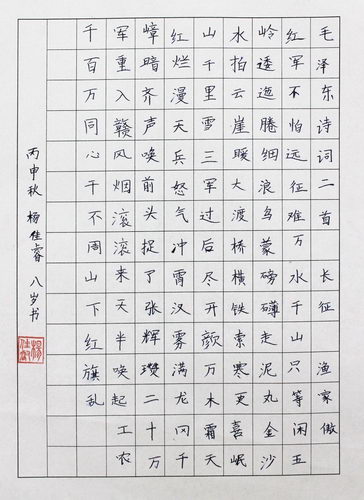 毛泽东诗词二首 长征 渔家傲
红军不怕远征难万水千山只等闲五
岭逶迤腾细浪乌蒙磅礴走泥丸金沙
水拍云崖暖大渡桥横铁索寒更喜岷
山千里雪三军过后尽开颜万木霜天
红烂漫天兵怒气冲霄汉雾满龙冈千
嶂暗齐声唤前头捉了张辉瓒二十万
军重入赣风烟滚滚来天半唤起工农
千百万同心干不周山下红旗乱
丙申秋 杨佳睿 八岁书